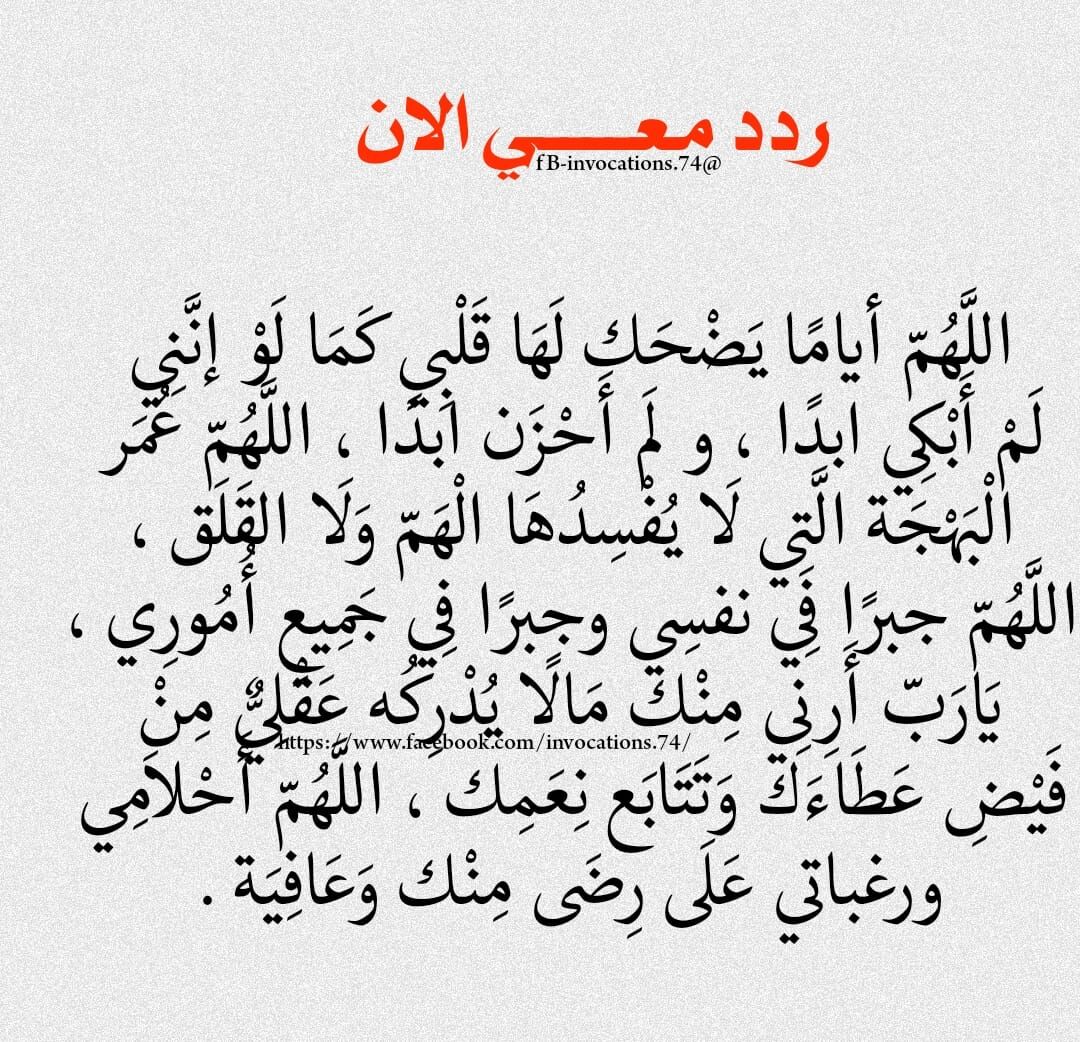 ردد معـــــي الان
fB-invocations.74@
اللَّهُمّ أيامًا يَضْحَك لَهَا قَلْبِي كَمَا لَوْ إنَّنِي
لَمْ أَبْكِي ابدًا ، و لَم أَحْزَن ابَدًا ، اللَّهُمّ عُمَر
الْبَهْجَة الَّتِي لَا يُفْسِدُهَا الْهَمّ وَلَا القَلَق ،
اللَّهُمّ جبرًا فَِي نفسِي وجبرًا فِي جَمِيع أُمُورِي ،
يَارَبّ أَرِنِي مِنْك مَالًا يُدْرِكُه عَقْلِيٌّ مِنْ
https://www.facebook.com/invocations.74/
فَيْضِ عَطَاءَك وَتَتَابَع نِعَمِك ، اللَّهُمّ أَحْلَامِي
ورغباتي عَلَى رِضَى مِنْك وَعَافِيَة .